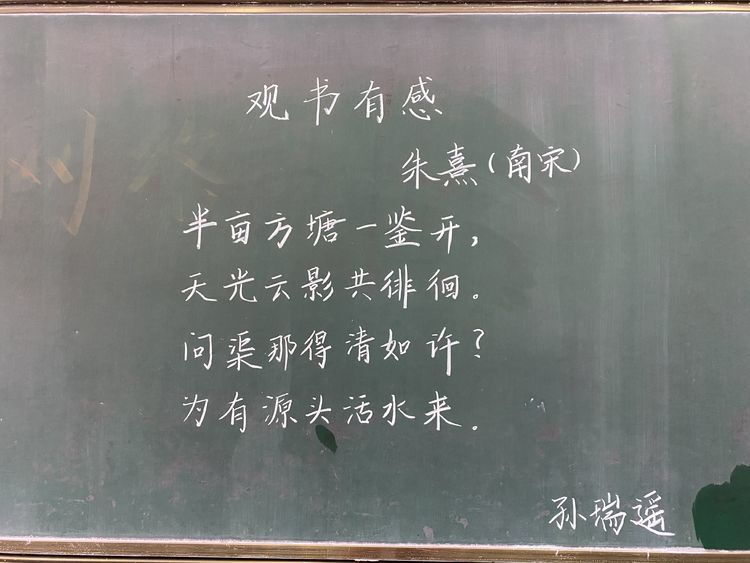 观书有感
朱熹(南宋)
半亩方塘一鉴开,
天光云影共徘徊。
问渠那得清如许?
为有源头活水来.
孙瑞遥